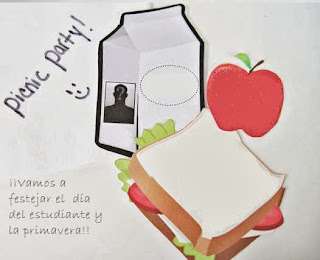 Picnic party!
¡¡Vamos a
festejar el día
del estudiante y
la primavera!!